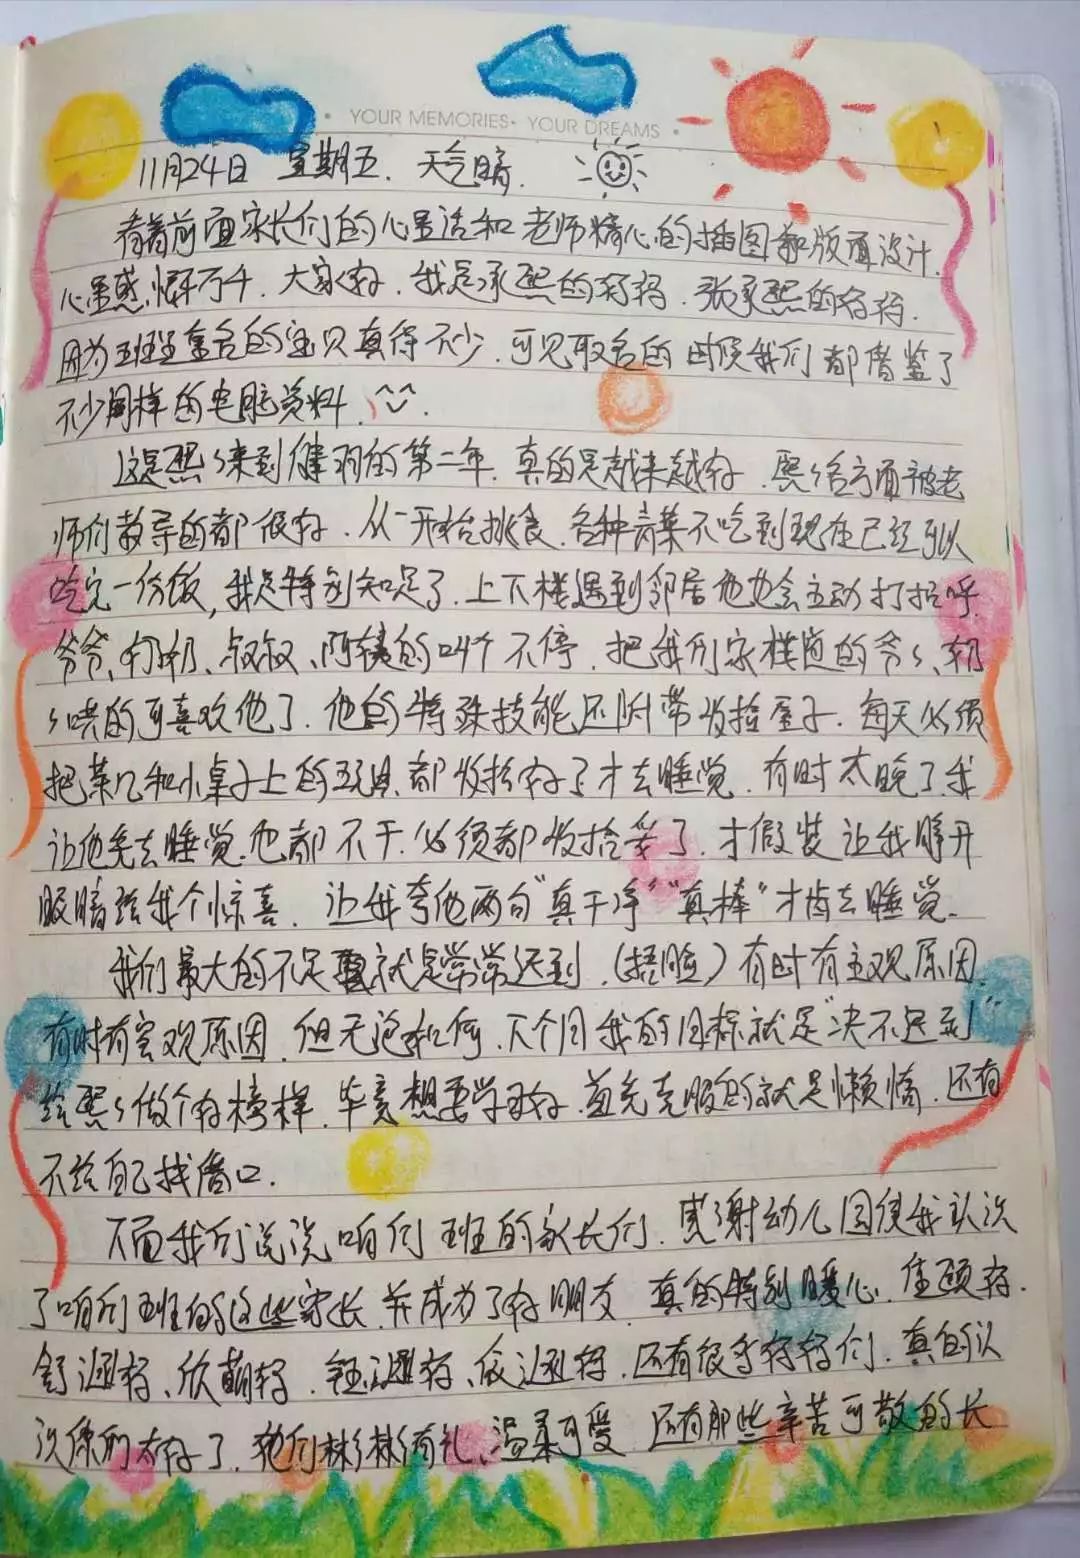 YOUR MEMORIES· YOUR DREAMS
11月24日 星期五. 天气晴.
看着前面家长们的心里话和老师精心的插图和版面设计.
心里感慨万千. 大家好. 我是承熙的妈妈. 张承熙的妈妈.
因为班里重名的宝贝真得不少. 可见取名的时侯我们都借鉴了
不少同样的电脑资料.
这是熙々来到健翔的第二年. 真的是越来越好. 熙々各方面被老
师们教导的都很好. 从一开始挑食. 各种青菜不吃到现在已经可以
吃完一份饭, 我是特别知足了. 上下楼遇到邻居他也会主动打招呼.
爷爷、奶奶、叔叔、阿姨的叫个不停. 把我们家楼道的爷々、奶
々哄的可喜欢他了. 他的特殊技能还附带收捡屋子. 每天必须
把茶几和小桌子上的玩具都收拾好了才去睡觉. 有时太晚了我
让他先去睡觉. 他都不干. 必须都收拾完了. 才假装让我睁开
眼睛给我个惊喜. 让我夸他两句“真干净”“真棒”才肯去睡觉.
我们最大的不足就是常常迟到. (捂脸) 有时有主观原因.
有时有客观原因. 但无论如何. 下个月我的目标就是“决不迟到”
给熙々做个好榜样. 毕竟想要学好. 首先克服的就是懒惰. 还有
不给自己找借口.
下面我们说说咱们班的家长们. 感谢幼儿园使我认识
了咱们班的这些家长. 并成为了好朋友. 真的特别暖心. 佳颐妈.
舒涵妈、欣萌妈. 钰涵妈、依涵妈. 还有很多妈妈们. 真的认
识你们太好了. 她们彬彬有礼、温柔可爱. 还有那些辛苦可敬的长